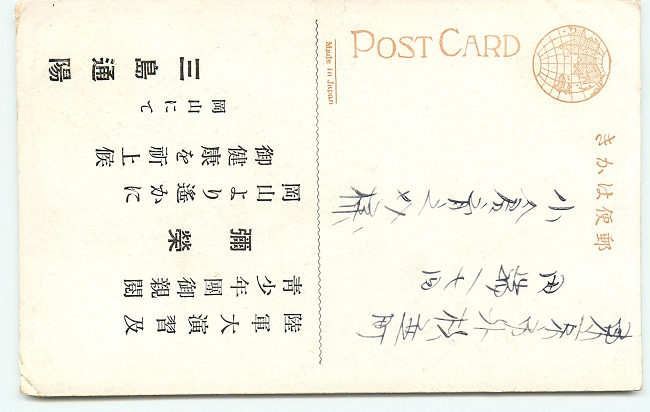 POST CARD
Made in Japan
郵便はかき
東京市外杉並町
様
陸軍大演習及
青少年團御親閲
彌榮
岡山より遙かに
御健康を祈上候
岡山にて
三島通陽